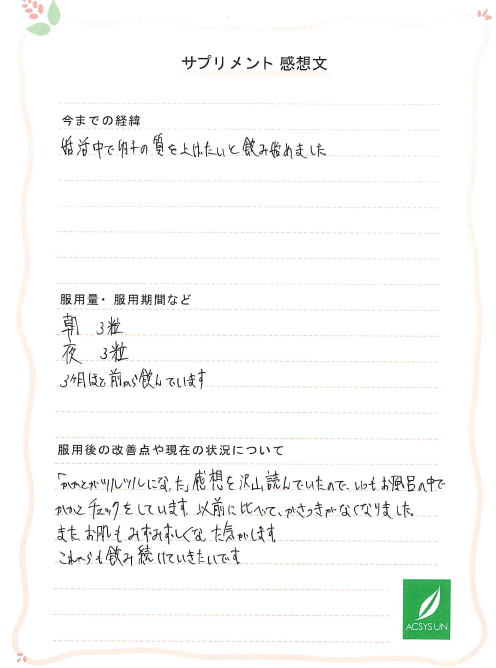 サプリメント 感想文
今までの経緯
婚活中で卵子の質を上げたいと飲み始めました
服用量・服用期間など
朝 3粒
夜 3粒
3ヶ月ほど前から飲んでいます
服用後の改善点や現在の状況について
「かかとがツルツルになった」感想を沢山読んでいたので、いつもお風呂の中で
かかとチェックをしています 以前に比べて、かさつきがなくなりました。
また お肌もみずみずしくなった気がします
これからも飲み続けていきたいです
ACSYSUN